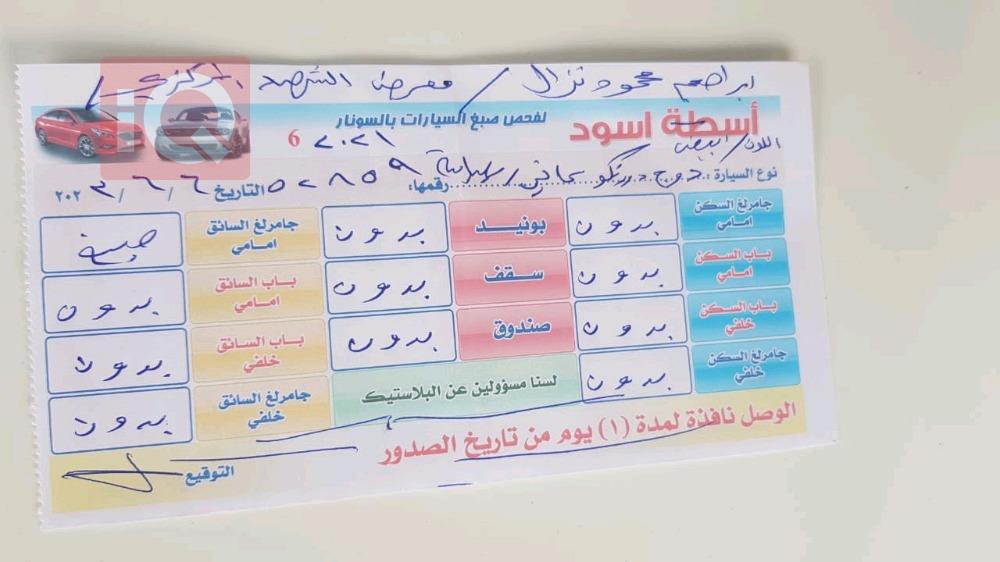 ابراهيم محمود نزال / معرض الشهد المركزي /
IQ
أسطة اسود لفحص صبغ السيارات بالسونار
اللون / ابيض ٢٠٢١ 6
نوع السيارة : دوج رقمها: ٥٢٨٥٩ التاريخ ٦ / ٦ / ٢٠٢٣
جامرلغ السكن امامي بدون بونيد بدون جامرلغ السائق امامي صبغ
باب السكن امامي بدون سقف بدون باب السائق امامي بدون
باب السكن خلفي بدون صندوق بدون باب السائق خلفي بدون
جامرلغ السكن خلفي بدون لسنا مسؤولين عن البلاستيك جامرلغ السائق خلفي بدون
الوصل نافذة لمدة (١) يوم من تاريخ الصدور
التوقيع